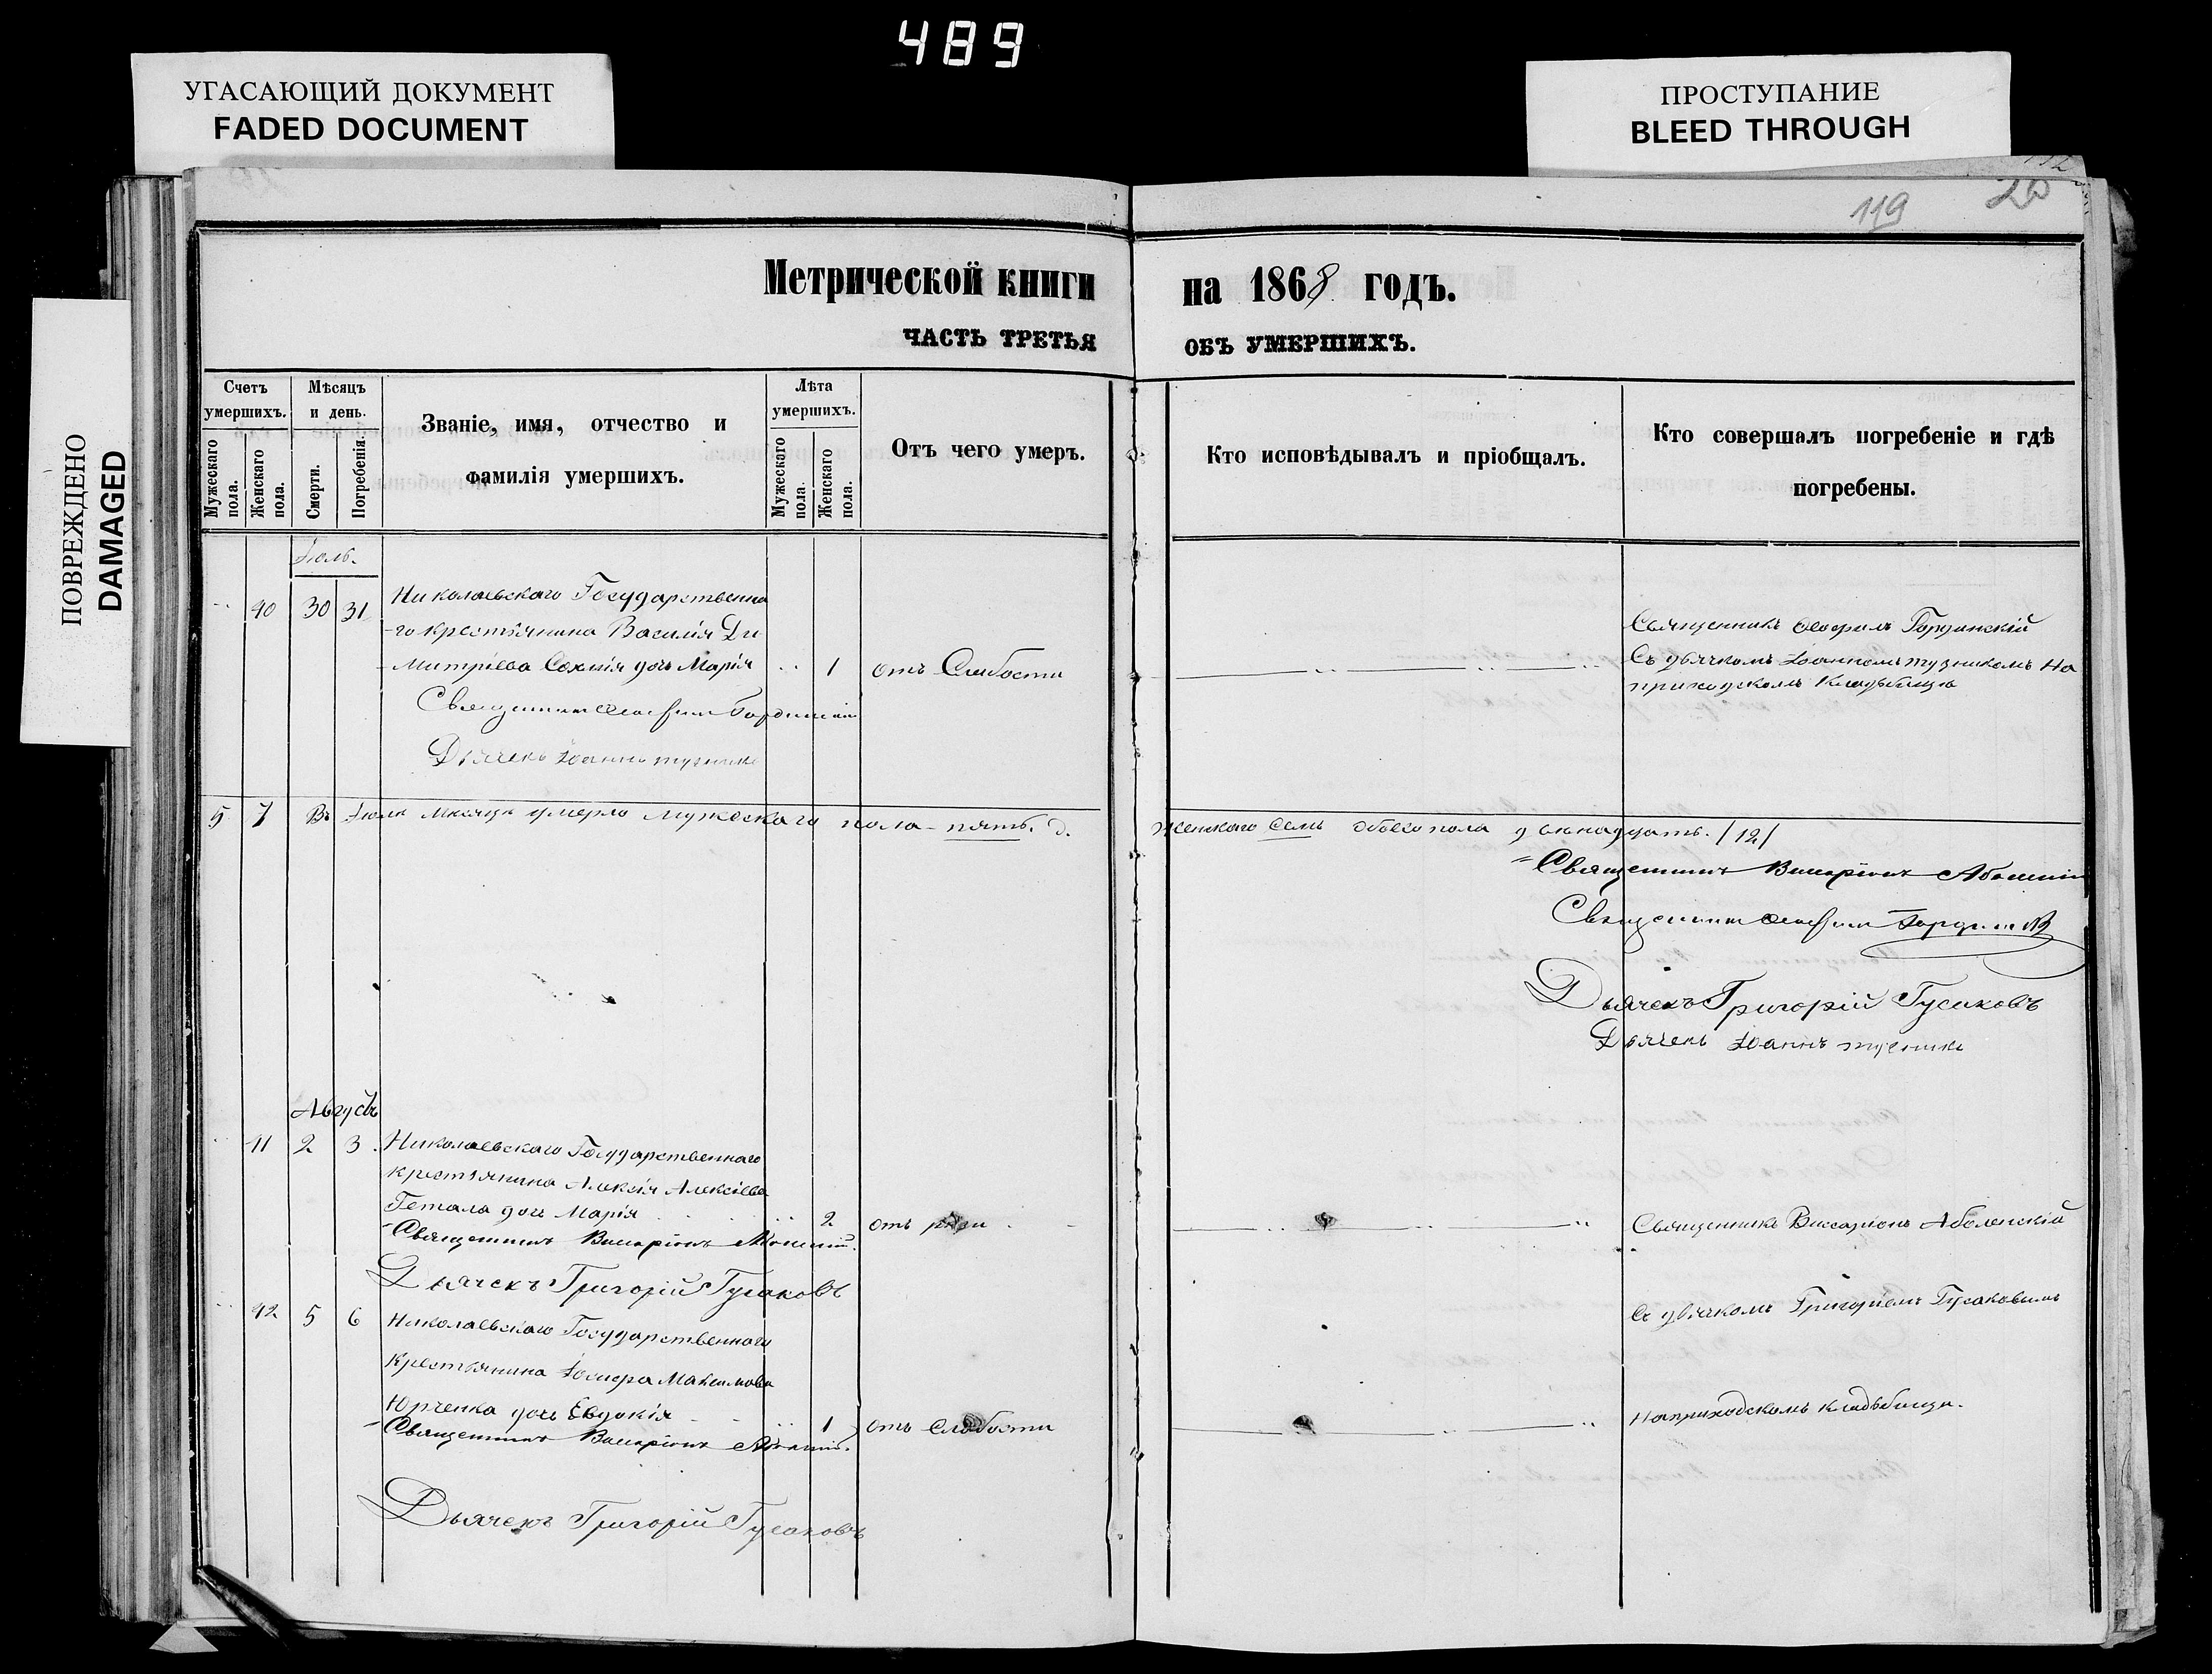 489
УГАСАЮЩИЙ ДОКУМЕНТ
FADED DOCUMENT
ПРОСТУПАНИЕ
BLEED THROUGH
ПОВРЕЖДЕНО
DAMAGED
119
Метрической книги на 1868 годъ.
ЧАСТЬ ТРЕТЬЯ ОБЪ УМЕРШИХЪ.
Счетъ умершихъ.
Мужескаго пола.
Женскаго пола.
Мѣсяцъ и день.
Смерти.
Погребенія.
Званіе, имя, отчество и
фамилія умершихъ.
Лѣта умершихъ.
Мужескаго пола.
Женскаго пола.
Отъ чего умеръ.
Кто исповѣдывалъ и пріобщалъ.
Кто совершалъ погребеніе и гдѣ
погребены.
Іюль.
40 30 31 Николаевскаго Государственна
-го крестьянина Василія Ди
-митріева дочь Марія 1 отъ Слабости
Священникъ
Съ дьячкомъ Іоанномъ на
приходскомъ кладбищѣ
Священникъ
Дьячекъ Іоаннъ
5 7 Въ Іюлѣ мѣсяцѣ умерло мужескаго пола - пять. Женскаго семь обоего пола двѣнадцать. /12/
Священникъ Виссаріонъ Аболенскій
Священникъ
Дьячекъ Григорій Гусаковъ
Дьячекъ Іоаннъ
Августъ
41 2 3 Николаевскаго Государственнаго
крестьянина Алексія Алексіева
дочь Марія 2 отъ
Священникъ Виссаріонъ Аболенскій
Священникъ Виссаріонъ Аболенскій
Дьячекъ Григорій Гусаковъ
Съ дьячкомъ Григоріемъ Гусаковымъ
42 5 6 Николаевскаго Государственнаго
крестьянина Іосифа Максимова
Юрченка дочь Евдокія 1 отъ слабости
на приходскомъ кладбищѣ.
Священникъ Виссаріонъ Аболенскій.
Дьячекъ Григорій Гусаковъ